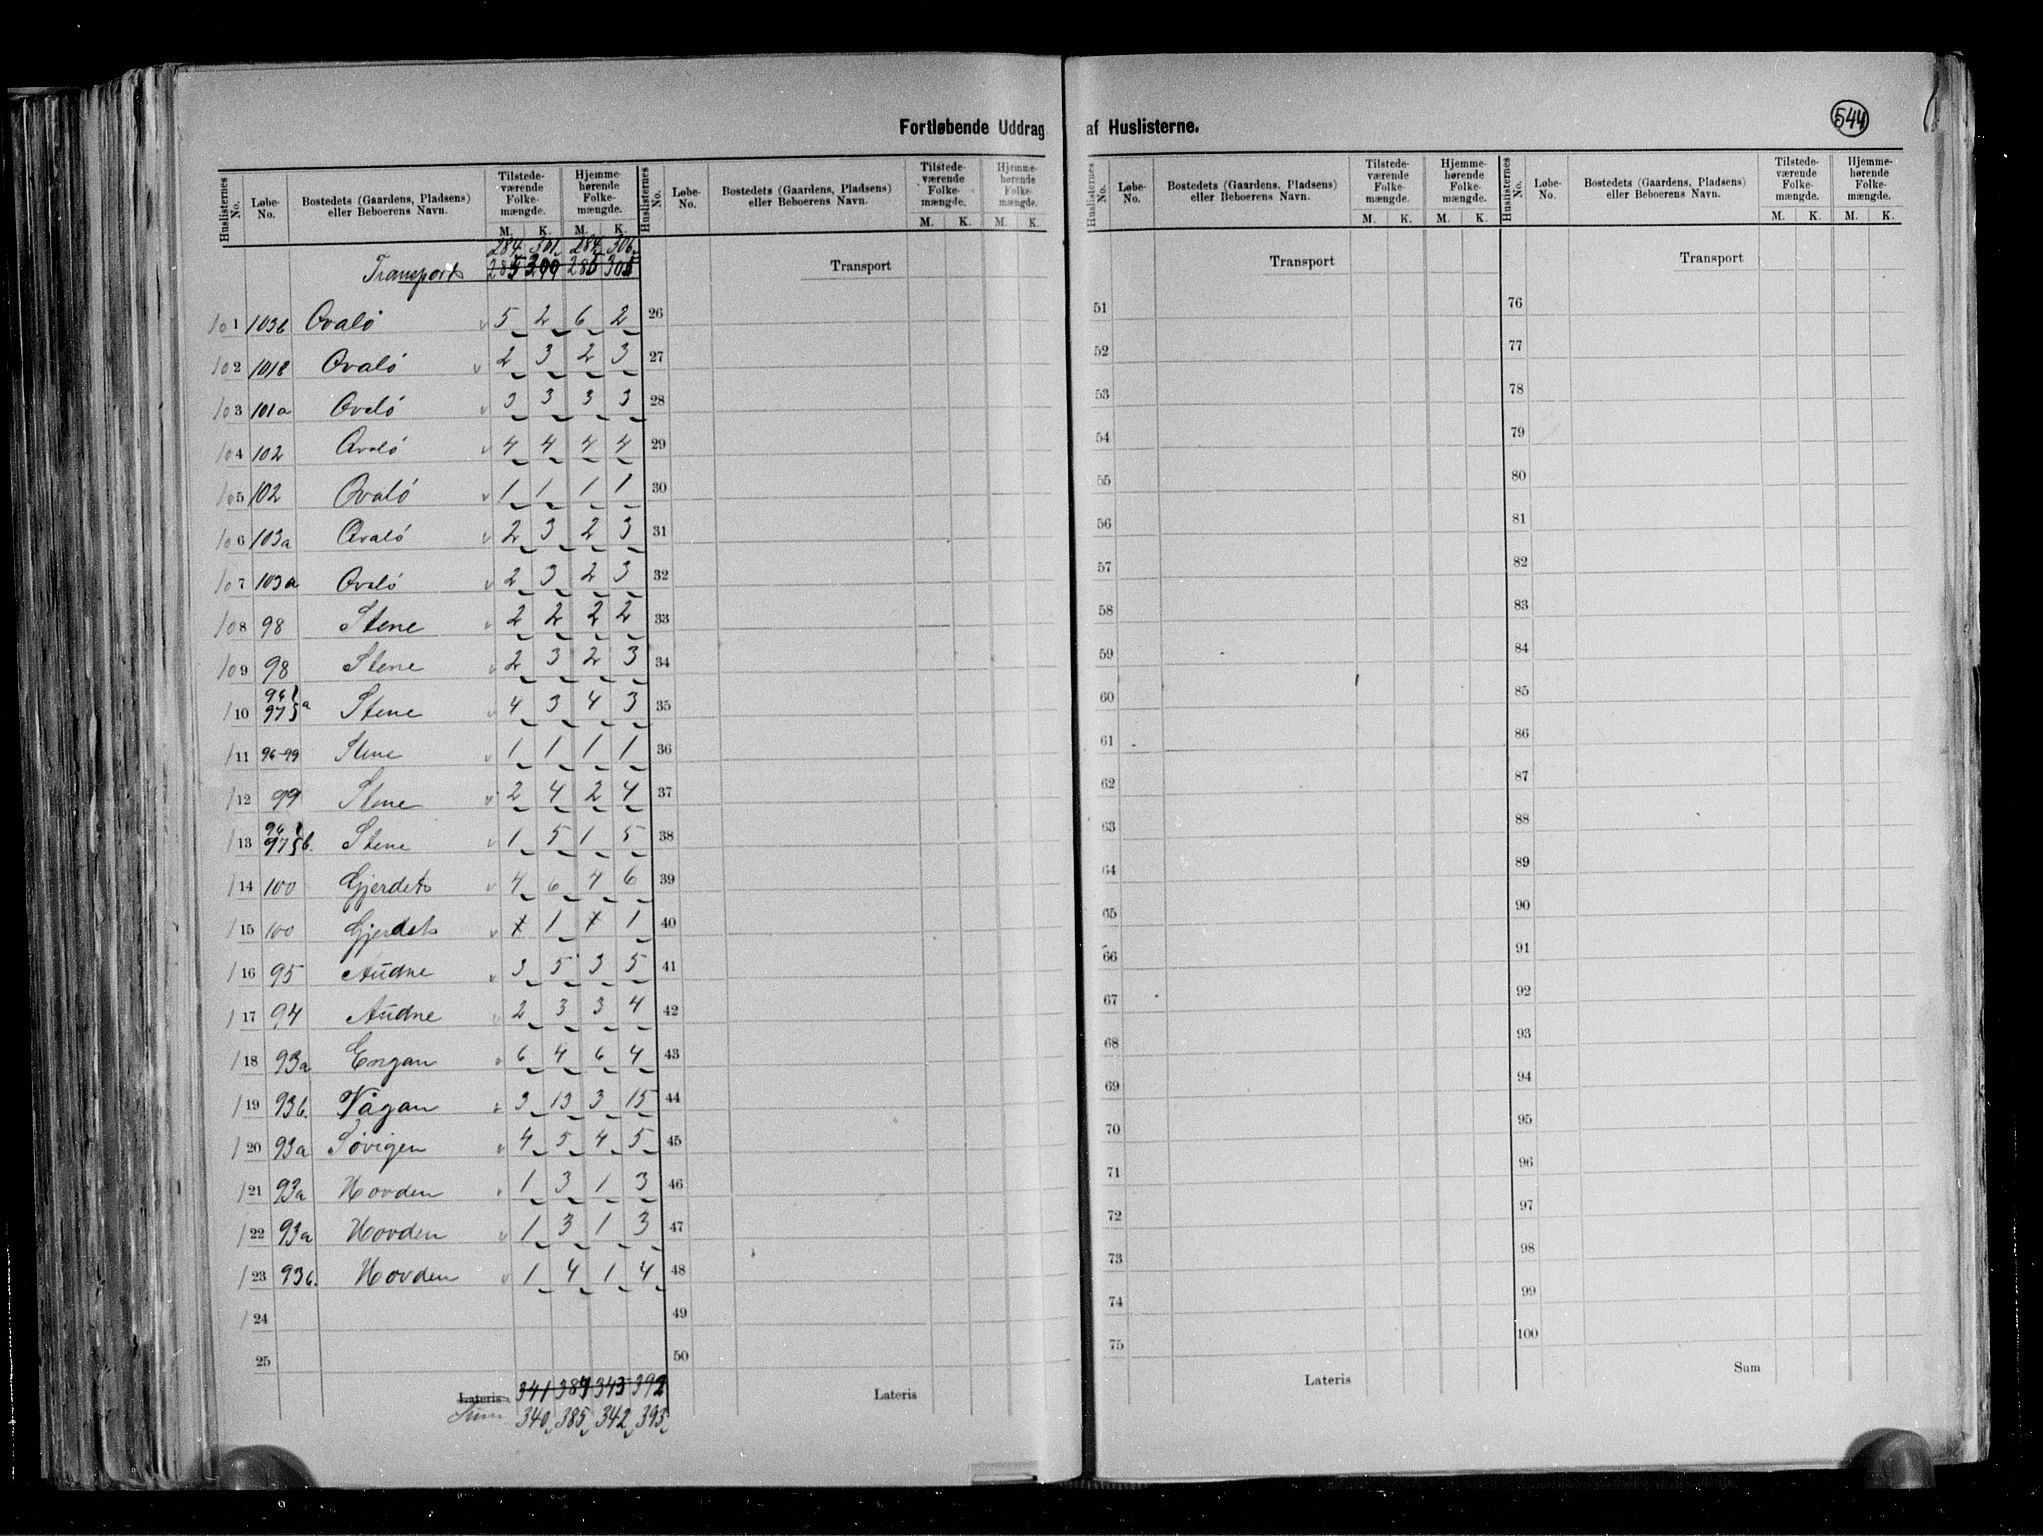 Fortløbende Uddrag af Huslisterne.
544
Huslisternes No. Løbe-No. Bostedets (Gaardens, Pladsens) eller Beboerens Navn. Tilstedeværende Folkemængde. M. K. Hjemmehørende Folkemængde. M. K.
Huslisternes No. Løbe-No. Bostedets (Gaardens, Pladsens) eller Beboerens Navn. Tilstedeværende Folkemængde. M. K. Hjemmehørende Folkemængde. M. K.
Huslisternes No. Løbe-No. Bostedets (Gaardens, Pladsens) eller Beboerens Navn. Tilstedeværende Folkemængde. M. K. Hjemmehørende Folkemængde. M. K.
Huslisternes No. Løbe-No. Bostedets (Gaardens, Pladsens) eller Beboerens Navn. Tilstedeværende Folkemængde. M. K. Hjemmehørende Folkemængde. M. K.
284 301 284 306
Transport 285 299 285 305
101 103b Ovalö 5 2 6 2
102 101b Ovalö 2 3 2 3
103 101a Ovalö 3 3 3 3
104 102 Ovalö 4 4 4 4
105 102 Ovalö 1 1 1 1
106 103a Ovalö 2 3 2 3
107 103a Ovalö 2 3 2 3
108 98 Stene 2 2 2 2
109 98 Stene 2 3 2 3
110 96 97 a Stene 4 3 4 3
111 96-99 Stene 1 1 1 1
112 99 Stene 2 4 2 4
113 96 97 b. Stene 1 5 1 5
114 100 Gjerdet 4 6 4 6
115 100 Gjerdet x 1 x 1
116 95 Audne 3 5 3 5
117 94 Audne 2 3 3 4
118 93a Engan 6 4 6 4
119 93b. Vågan 3 13 3 15
120 93a Søvigen 4 5 4 5
121 93a Hovden 1 3 1 3
122 93a Hovden 1 3 1 3
123 93b. Hovden 1 4 1 4
124
25
Lateris 341 384 343 392
Sum 340 385 342 393
Transport
26
27
28
29
30
31
32
33
34
35
36
37
38
39
40
41
42
43
44
45
46
47
48
49
50
Lateris
Transport
51
52
53
54
55
56
57
58
59
60
61
62
63
64
65
66
67
68
69
70
71
72
73
74
75
Lateris
Transport
76
77
78
79
80
81
82
83
84
85
86
87
88
89
90
91
92
93
94
95
96
97
98
99
100
Sum